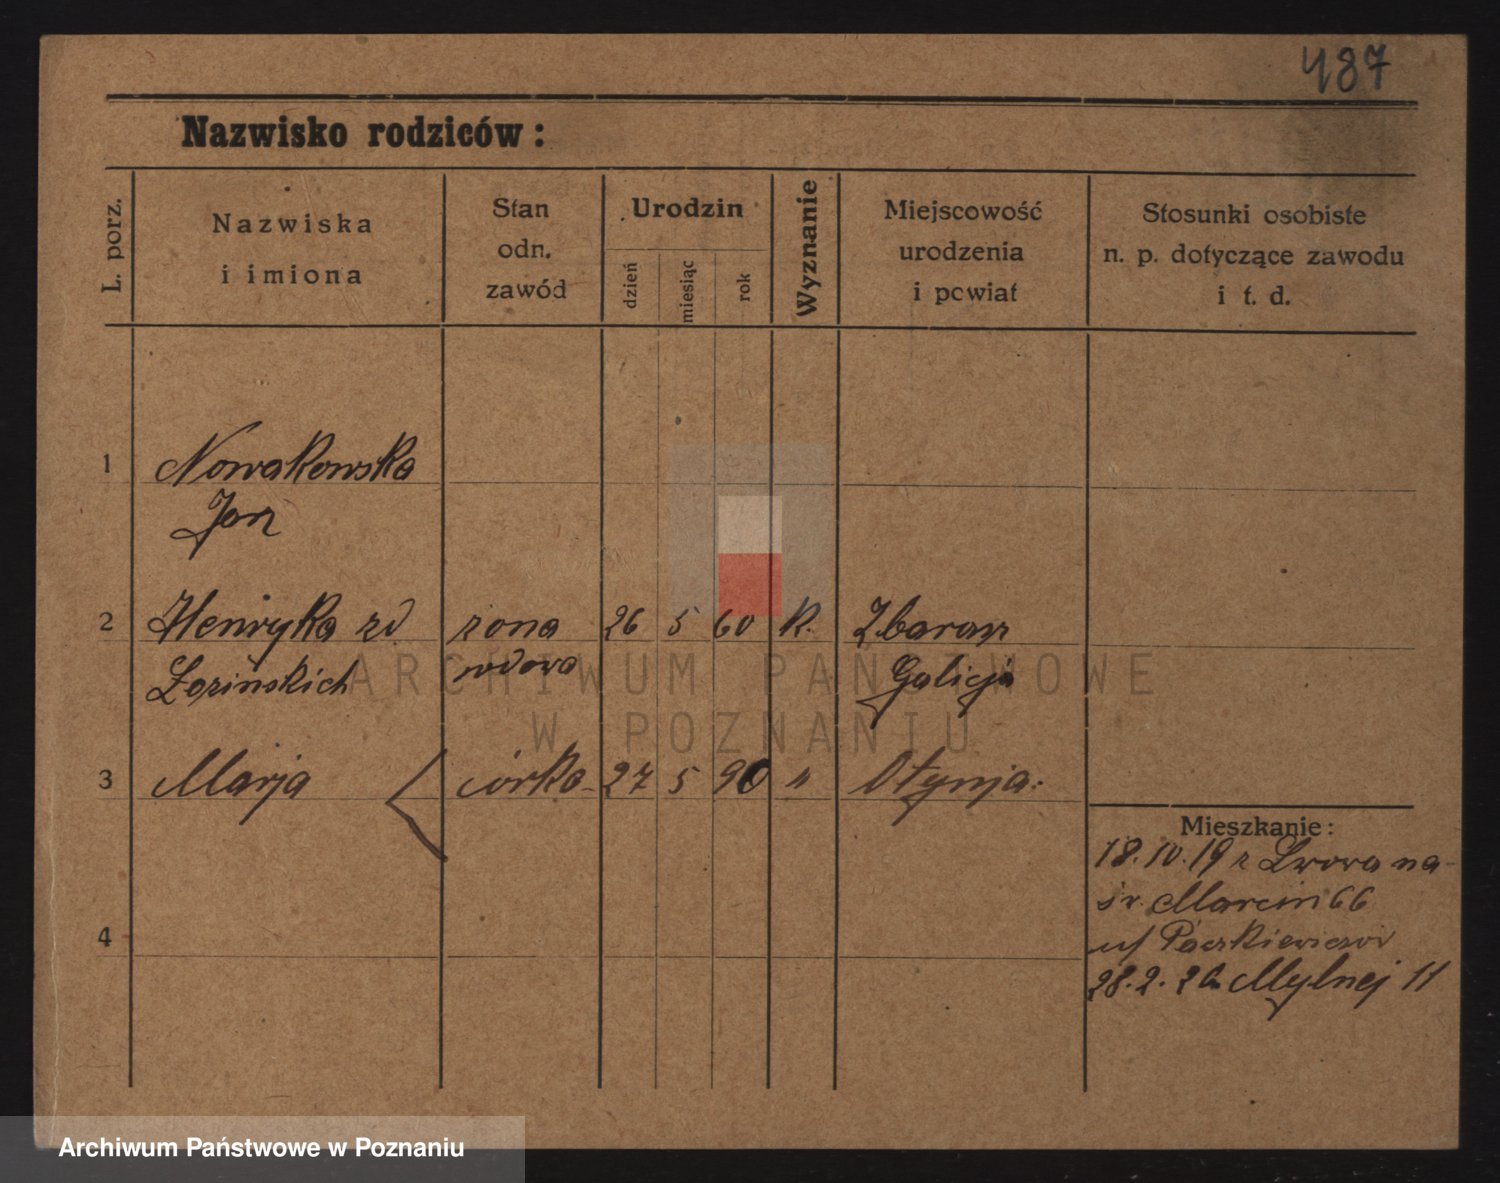 487
Nazwisko rodziców:
L. porz.
Nazwiska
i imiona
Stan
odn.
zawód
Urodzin
dzień
miesiąc
rok
Wyznanie
Miejscowość
urodzenia
i powiat
Stosunki osobiste
n. p. dotyczące zawodu
i t. d.
1 Nowakowska
Jan
2 Henryka zd żona 26 5 60 K. Zbaraż
Łozińskich wdowa Galicja
3 Marja córka 27 5 90 " Otynja.
4
Mieszkanie:
18.10.19 z Lwowa na
św. Marcin 66
u/ Paszkiewiczów
28.2.20 Mylnej 11
ARCHIWUM PAŃSTWOWE
W POZNANIU
Archiwum Państwowe w Poznaniu